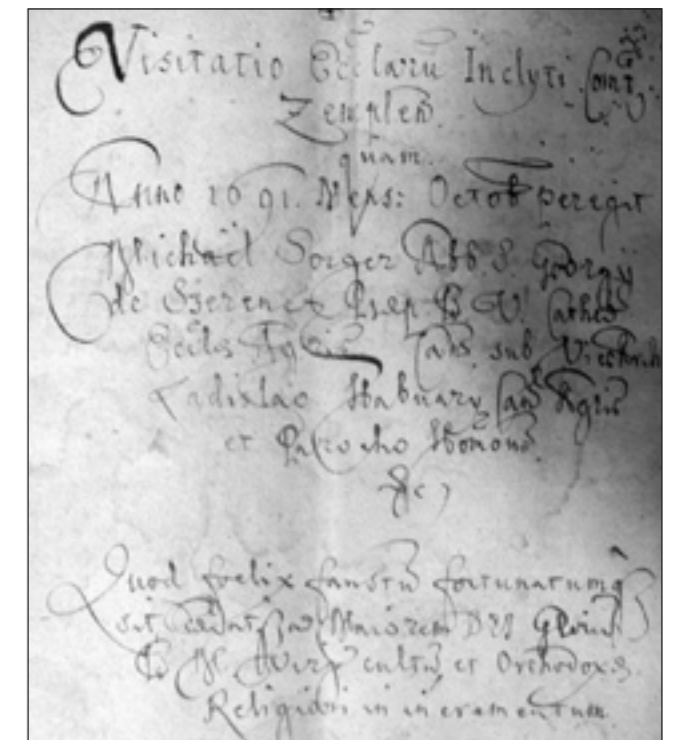 Visitatio Ecclarũ Inclyti Comt
Zemplen
quam
Anno 1691. Mens: Octob peregit
Michaël Sorger Abb S. Georgy
de Szerencz Praep B V. Cathed
Eccles Agrie Can sub
Ladislao Habuary Can Agrie
et Parocho Homon
&c
Quod foelix faustũ fortunatumq
sit cedatq ad Maiorem DEI Gloria
B M Virg cultũ et Orthodoxae
Religioni in incrementum